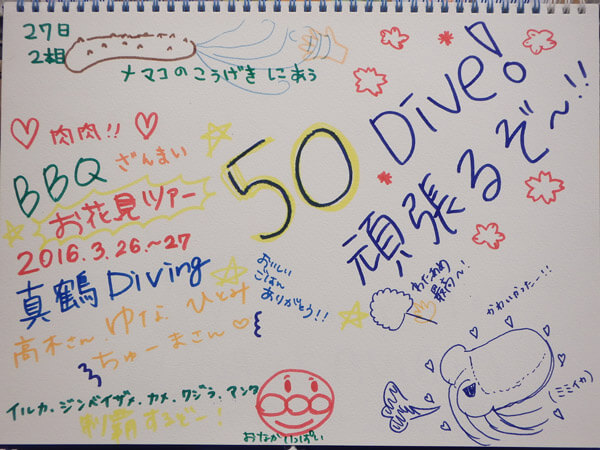 27日
2相
ナマコのこうげきにあう
50 Dive!
頑張るぞ〜!!
肉肉!!
BBQ ざんまい
お花見ツアー
2016.3.26.〜27
真鶴 Diving
おいしい
ごはん
ありがとう!!
高木さん ゆな ひとみ
ちゅーまさん
わたあめ
最高〜!
かわいかったー!!
(ミミイカ)
イルカ、ジンベイザメ、カメ、クジラ、マンタ
制覇するぞー!
おなかいっぱい